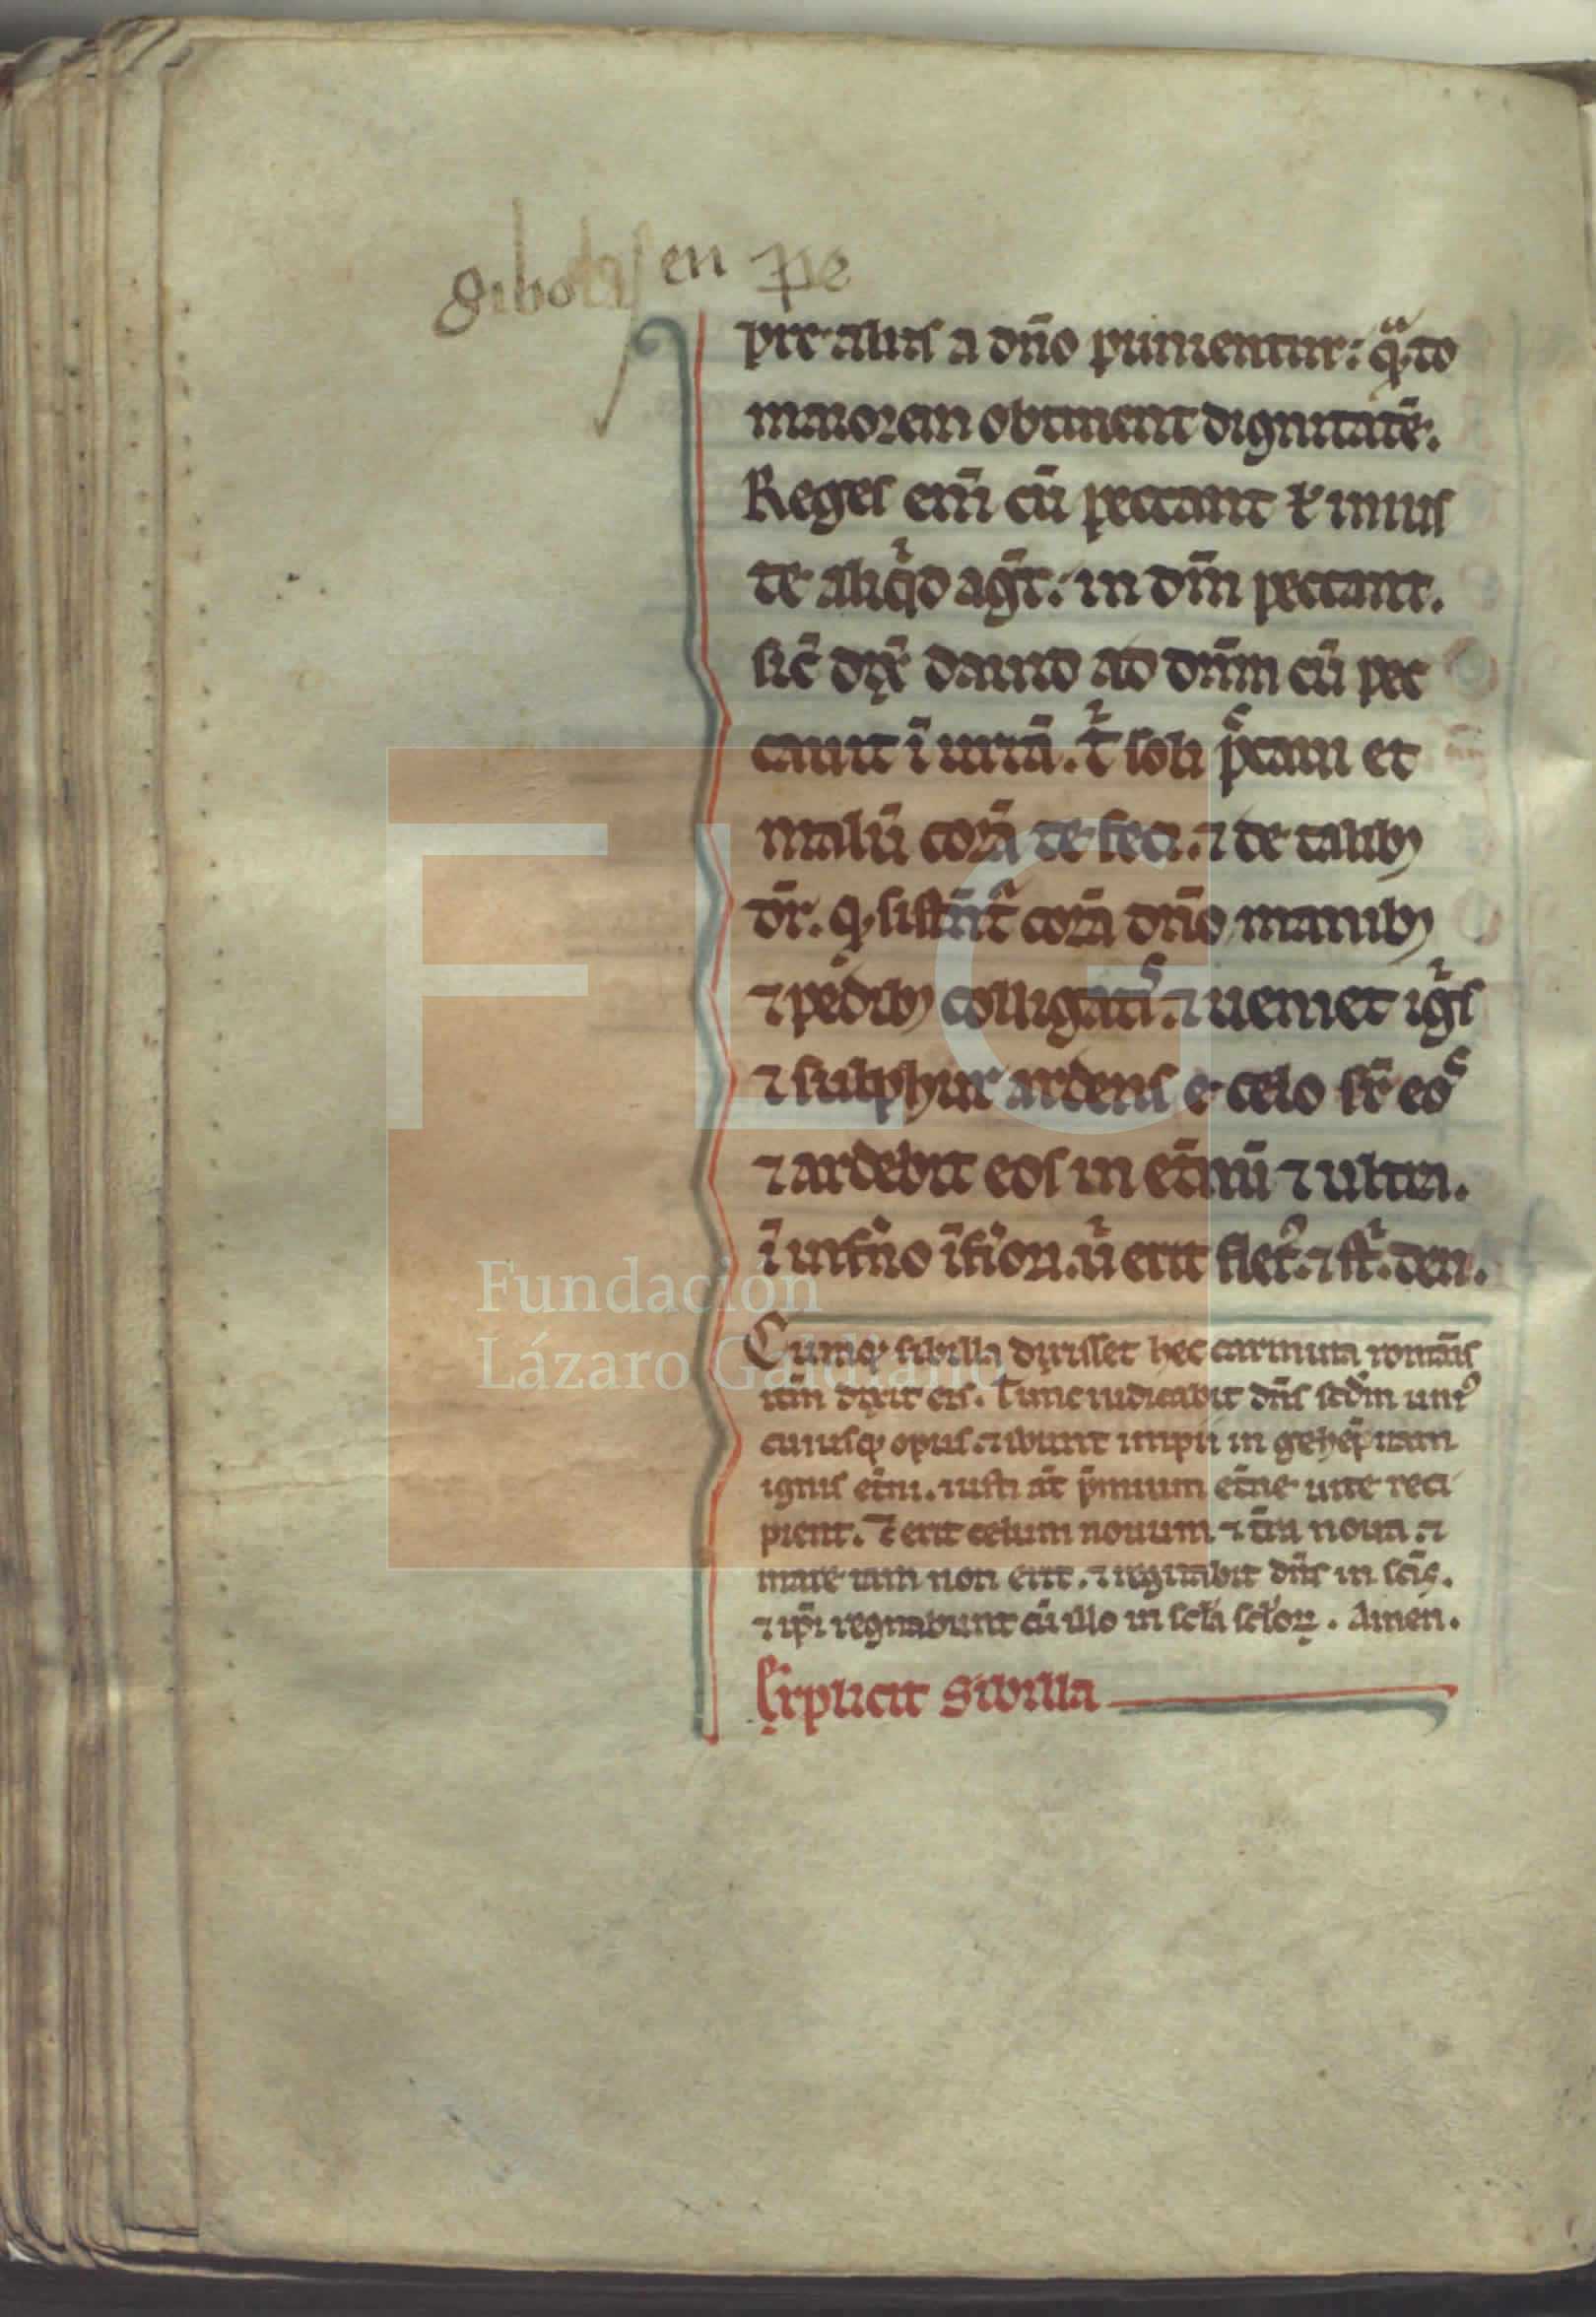 en pe
pre aliis a dño punientur: qͣ̈to
maiorem obtinent dignitatē.
Reges enī cū peccant ł inius
te aliqͥd agūt: in dm̄ peccant.
sic̄ dix̄ dauid ad dn̄m cū pec
cauit ī uriā. Tͥ soli p̄cauī et
malū corā te feci. ⁊ de talibꝯ
dr̄. qͥ sistūtͬ corā dn̄o manibꝯ
⁊ pedibꝯ colligatiˢ. ⁊ ueniet igͥs
⁊ sulphur ardens e celo sr̄ eoˢ
⁊ ardebit eos in et̄nū ⁊ ultra.
ī inf̄no īfiori. uͥ erit flet⁹. ⁊ stͥ. den.
Cumqꝫ sibilla dixisset hec carmina romāis
itm̄ dixit eis. Tunc iudicabit dn̄s scd̄m uni⁹
cuiusqꝫ opus. ⁊ ibunt impii in gehennam
ignis et̄ni. iusti āt p̄mium et̄ne uite reci
pient. ⁊ erit celum nouum ⁊ t̄ra noua. ⁊
mare iam non erit. ⁊ regnabit dn̄s in scīs.
⁊ ip̄i regnabunt cū illo in scl̄a scl̄oꝝ. Amen.
Explicit Sibilla
FLG
Fundación
Lázaro Galdiano